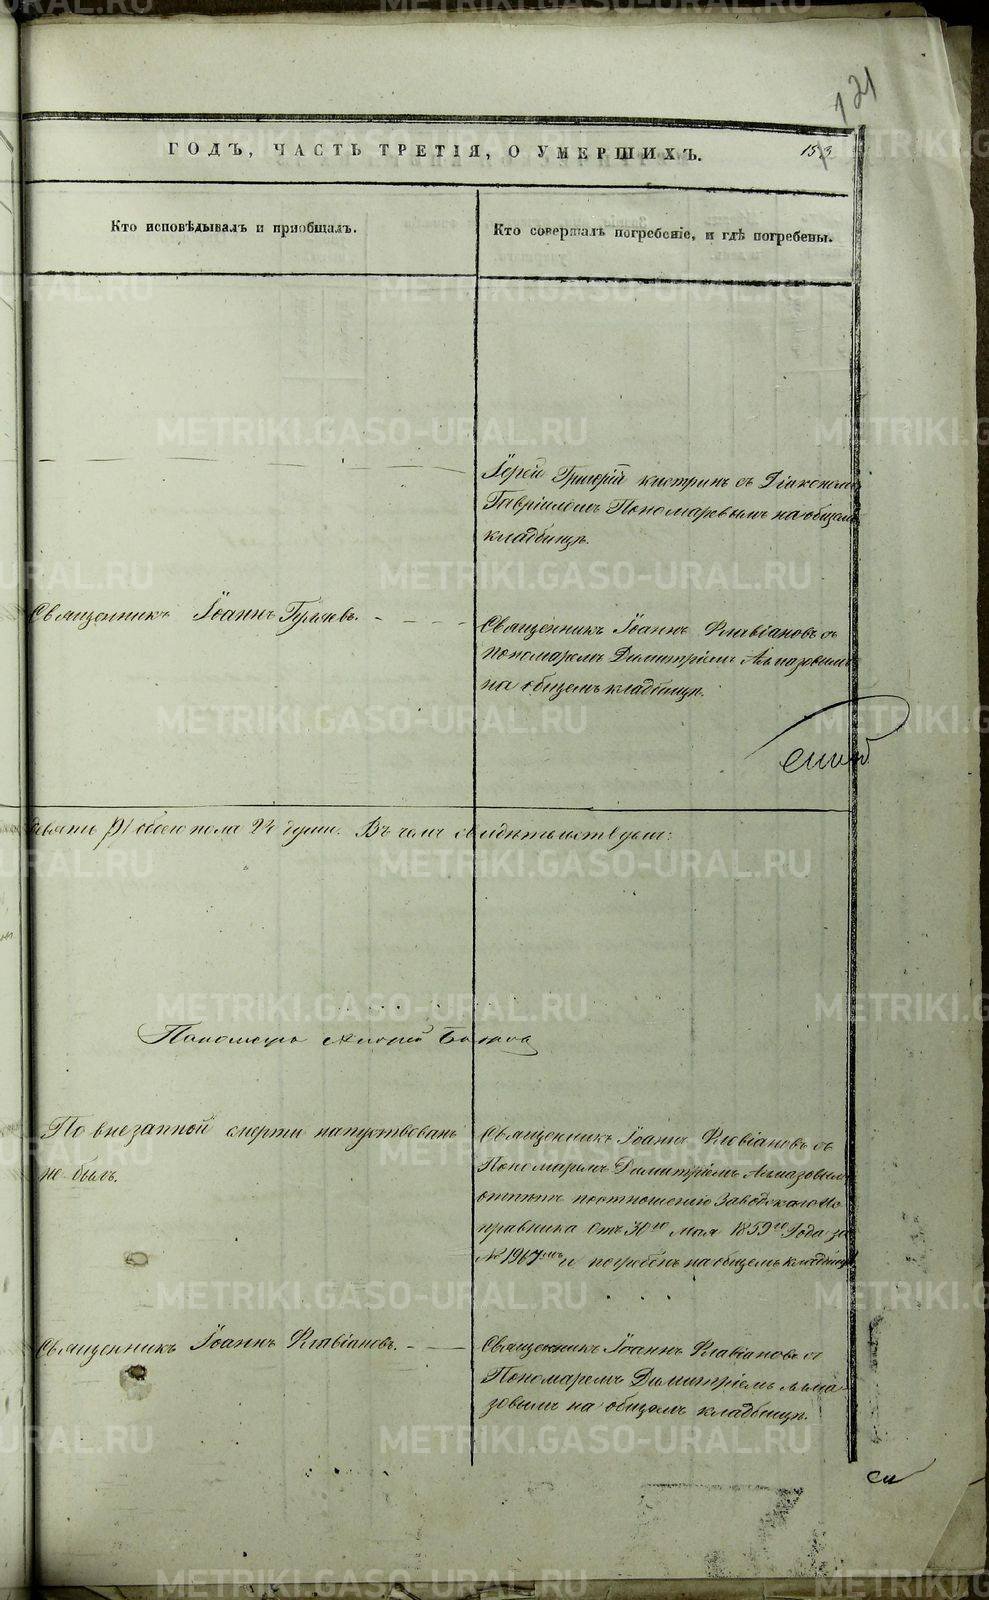 121
ГОДЪ, ЧАСТЬ ТРЕТІЯ, О УМЕРШИХЪ.
Кто исповѣдывалъ и пріобщалъ.
Кто совершалъ погребеніе, и гдѣ погребены.
Іерей Григорій с Діакономъ
Гавріиломъ Пономаревымъ на общемъ
кладбищѣ.
Священникъ Іоаннъ
Священникъ Іоаннъ Флавіановъ съ
пономаремъ Димитріемъ Алмазовымъ
на общемъ кладбищѣ.
девять обоего пола 24 души. Въ чемъ свидѣтельствуемъ:
Пономарь Андрей
По внезапной смерти напутствованъ
не былъ.
Священникъ Іоаннъ Флавіановъ съ
Пономаремъ Димитріемъ Алмазовымъ
Заводскаго Ис
правника отъ 30го мая 1859го Года за
№ 1967мъ и погребенъ на общемъ кладбищѣ
Священникъ Іоаннъ Флавіановъ.
Священникъ Іоаннъ Флавіановъ съ
Пономаремъ Димитріемъ Алма
зовымъ на общемъ кладбищѣ.
METRIKI.GASO-URAL.RU